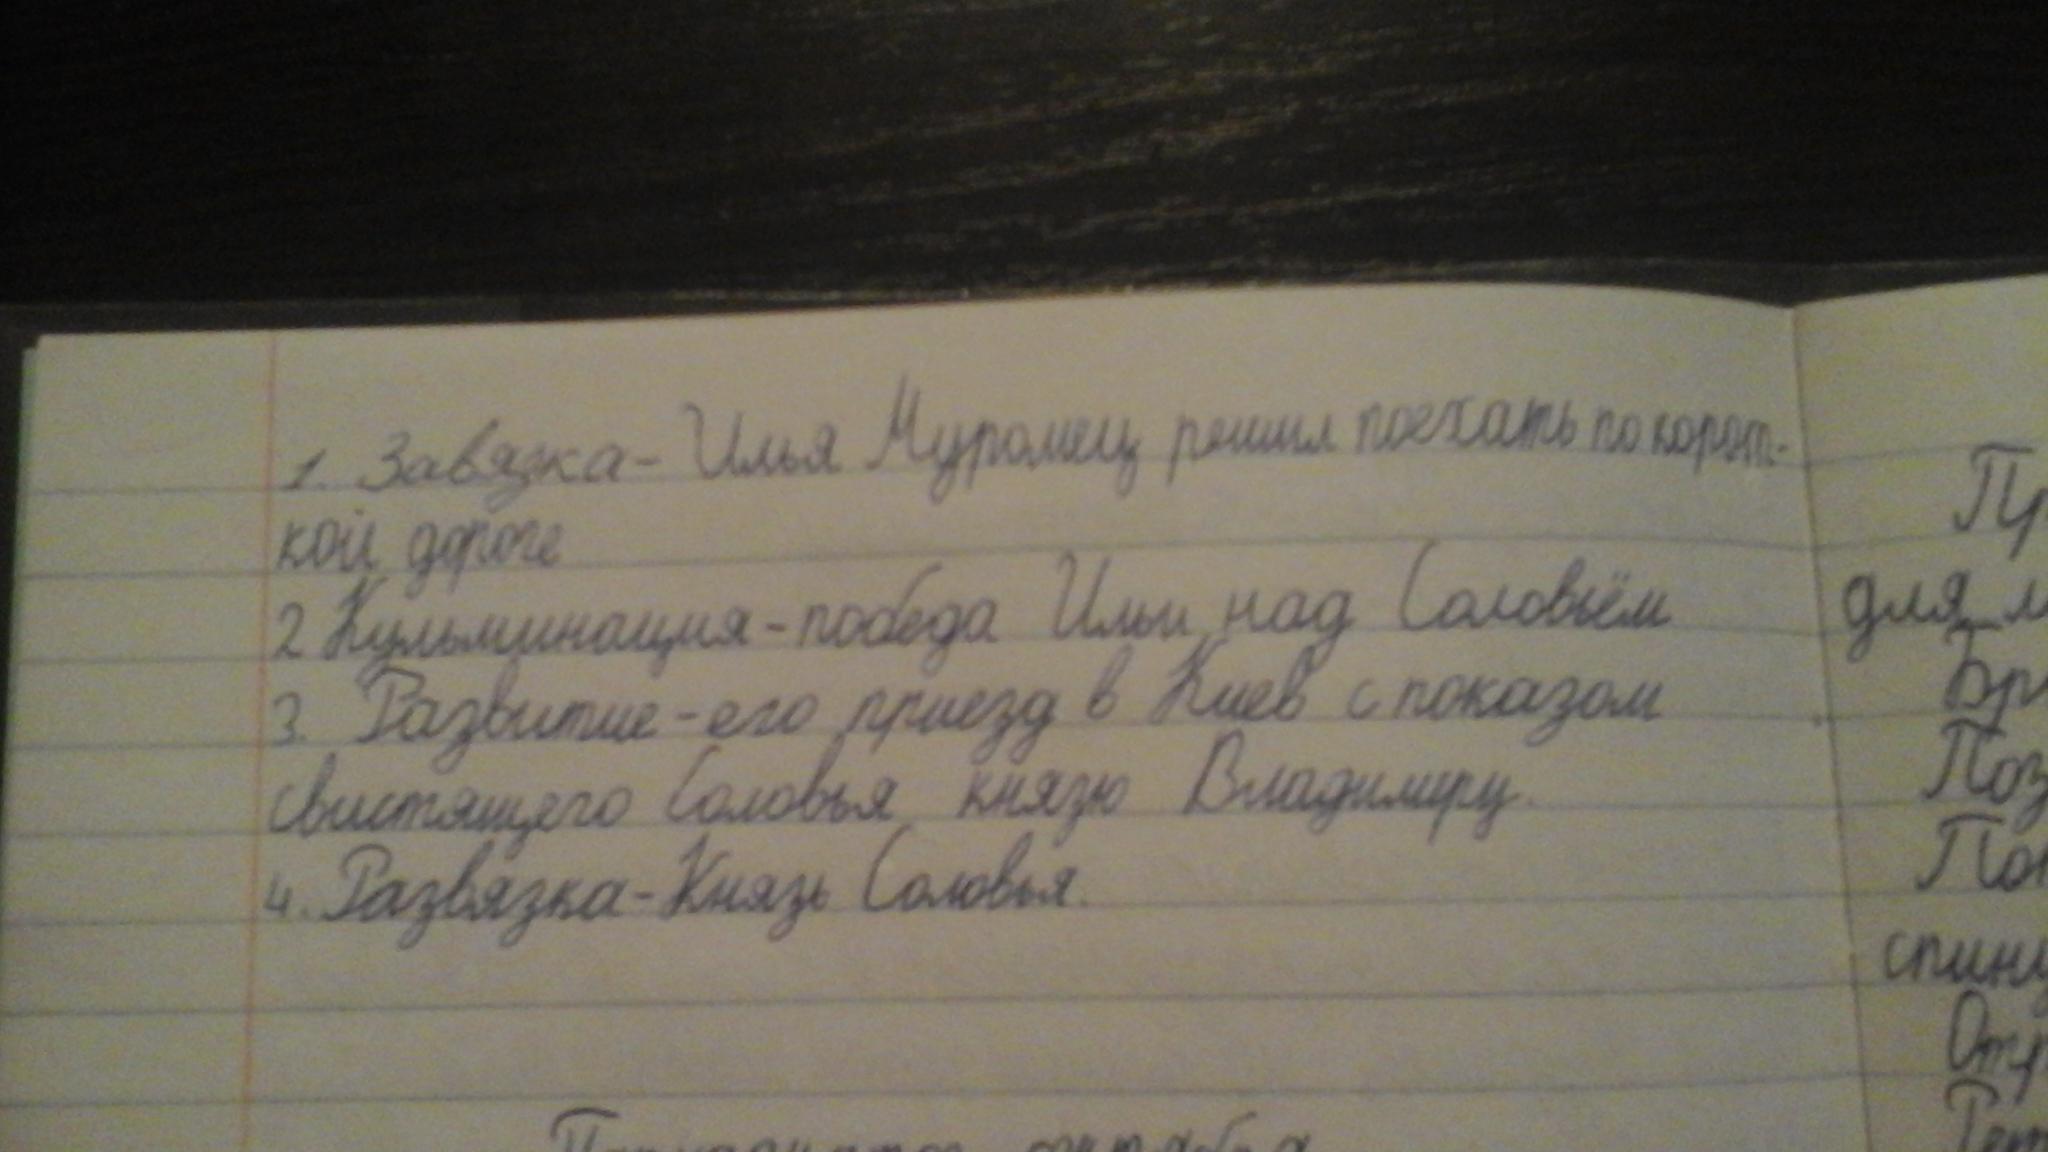 1. Завязка - Илья Муромец решил поехать по корот-
кой дороге
2 Кульминация - победа Ильи над Соловьём
3. Развитие - его приезд в Киев с показом
свистящего Соловья князю Владимиру.
4. Развязка - Князь Соловья.
октября
Пр
для м
Бр
Поз
Пок
спину
Отр